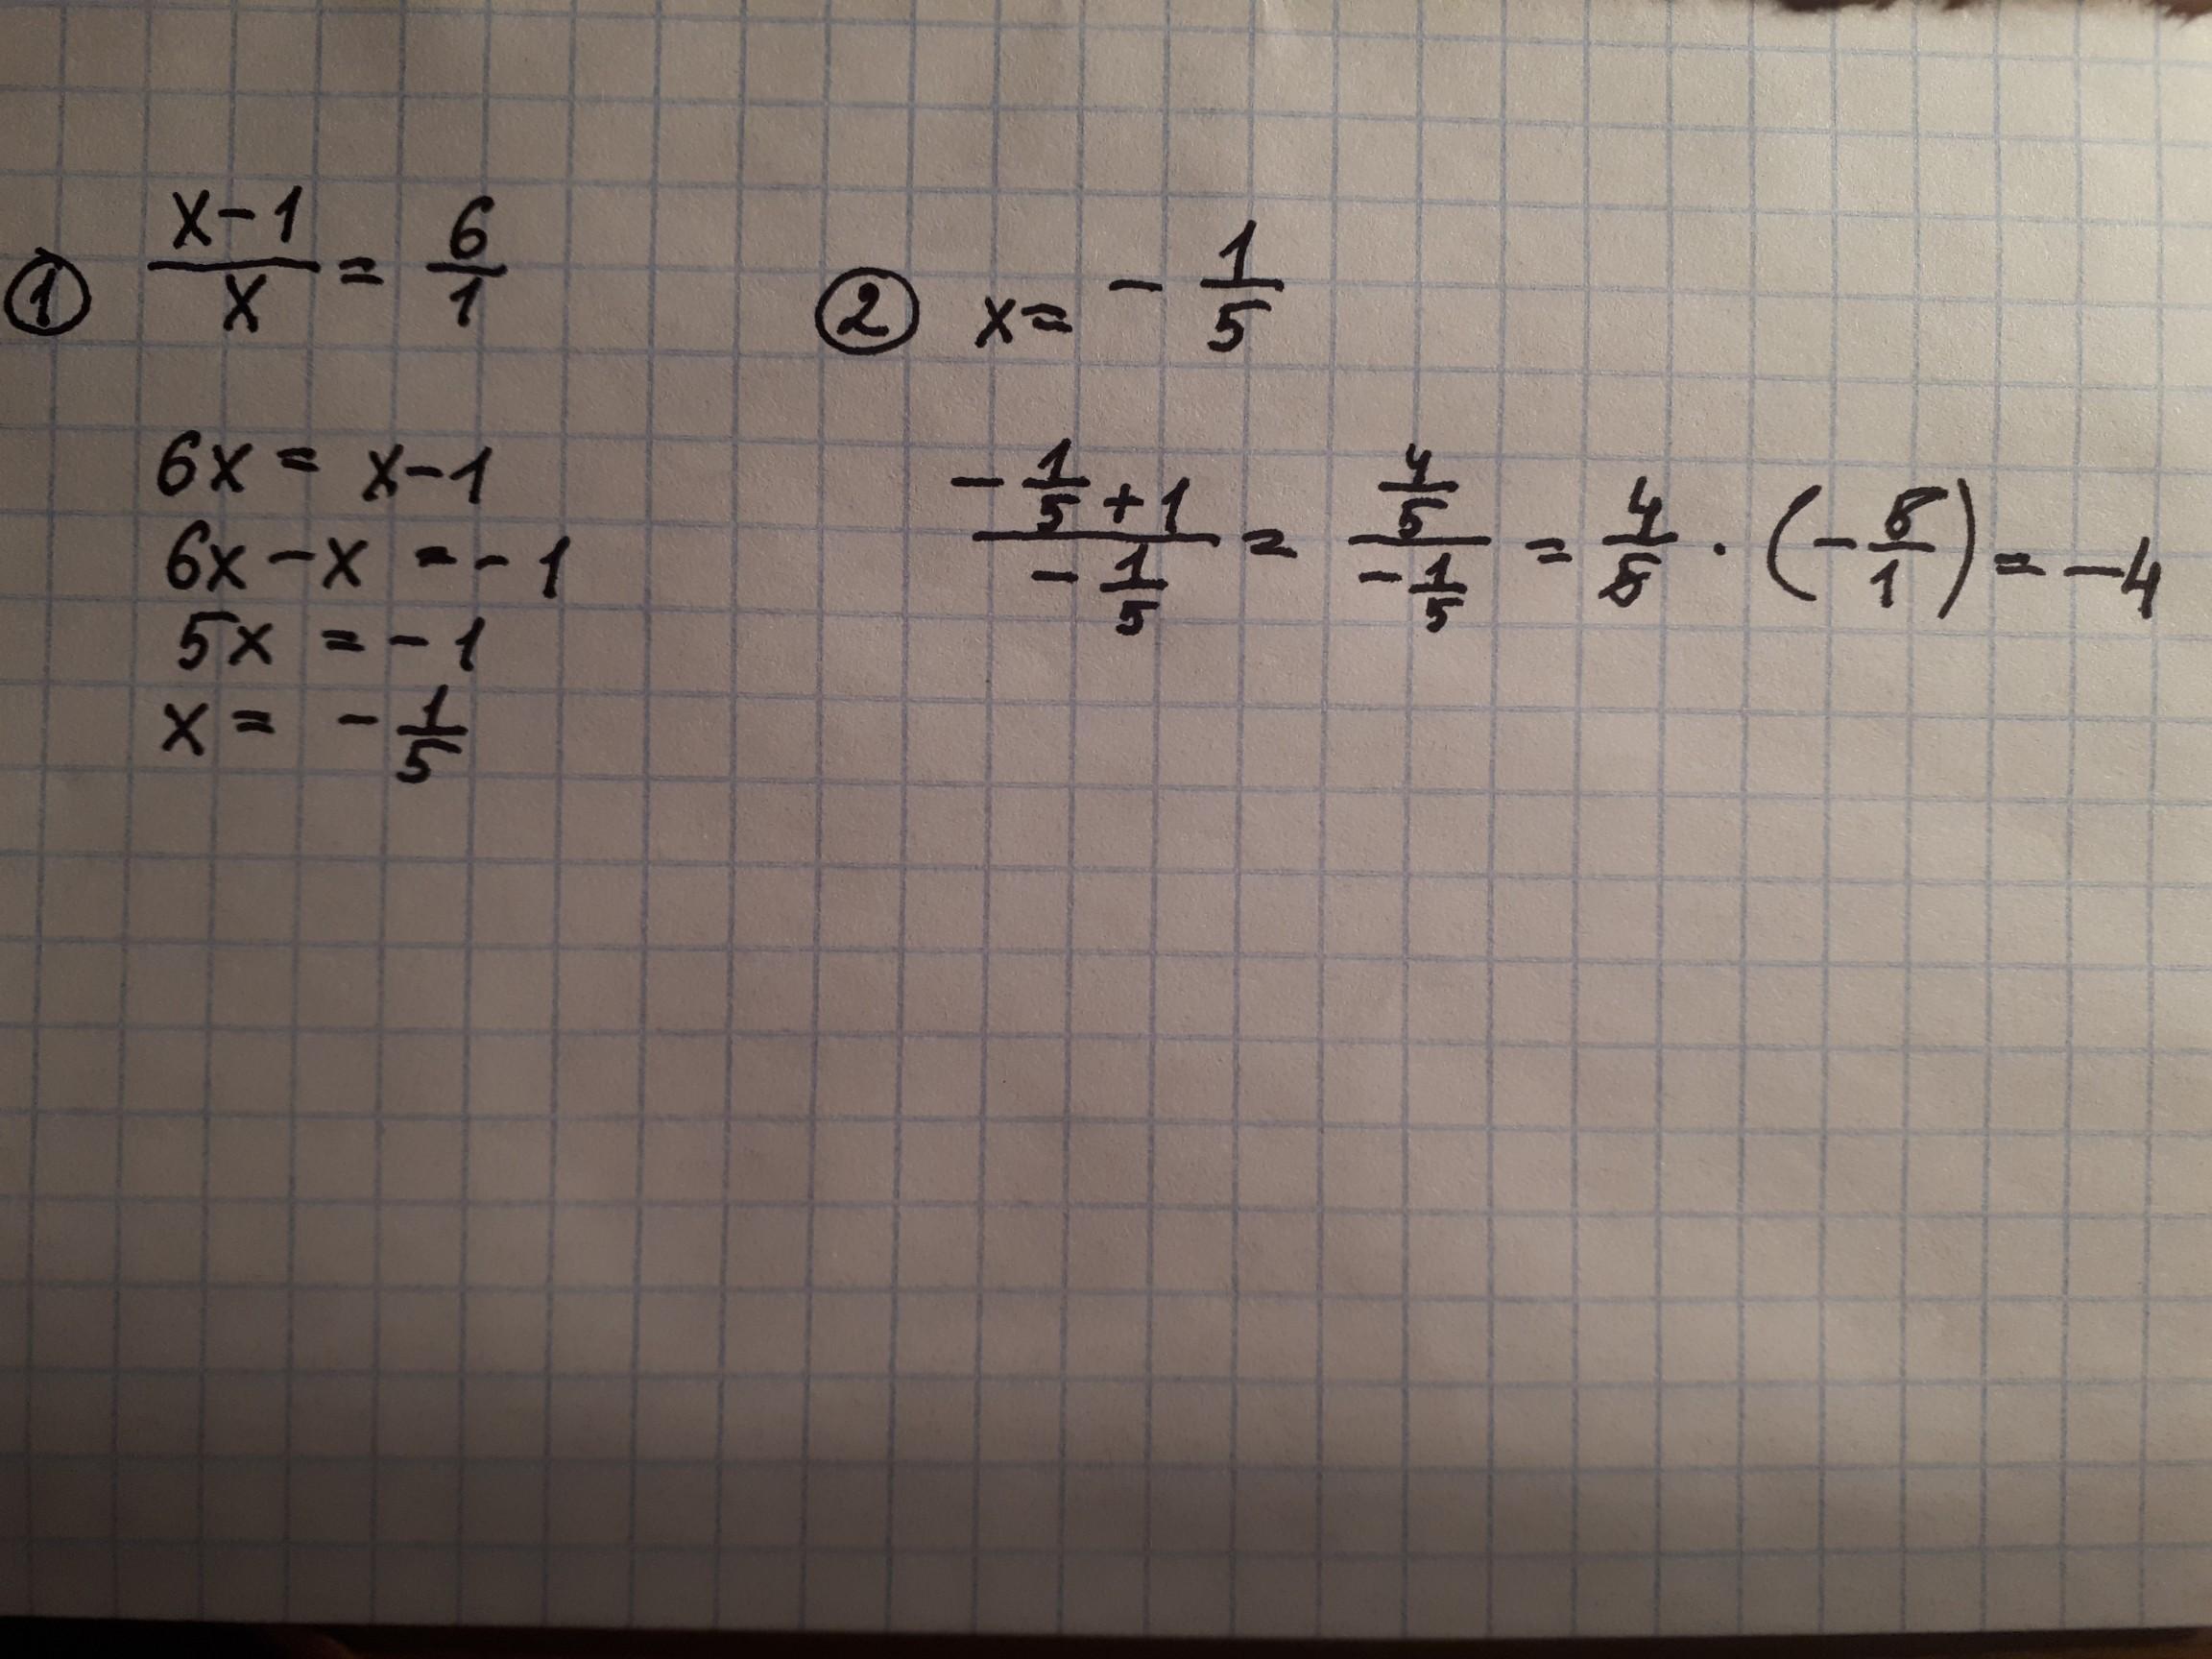 ① (x-1)/x = 6/1
6x = x-1
6x - x = -1
5x = -1
x = -1/5
② x = -1/5
(-1/5 + 1)/(-1/5) = (4/5)/(-1/5) = 4/5 · (-5/1) = -4